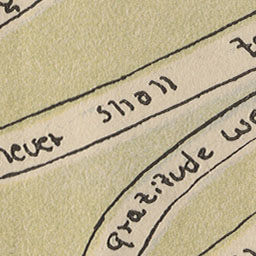 never shall
gratitude we